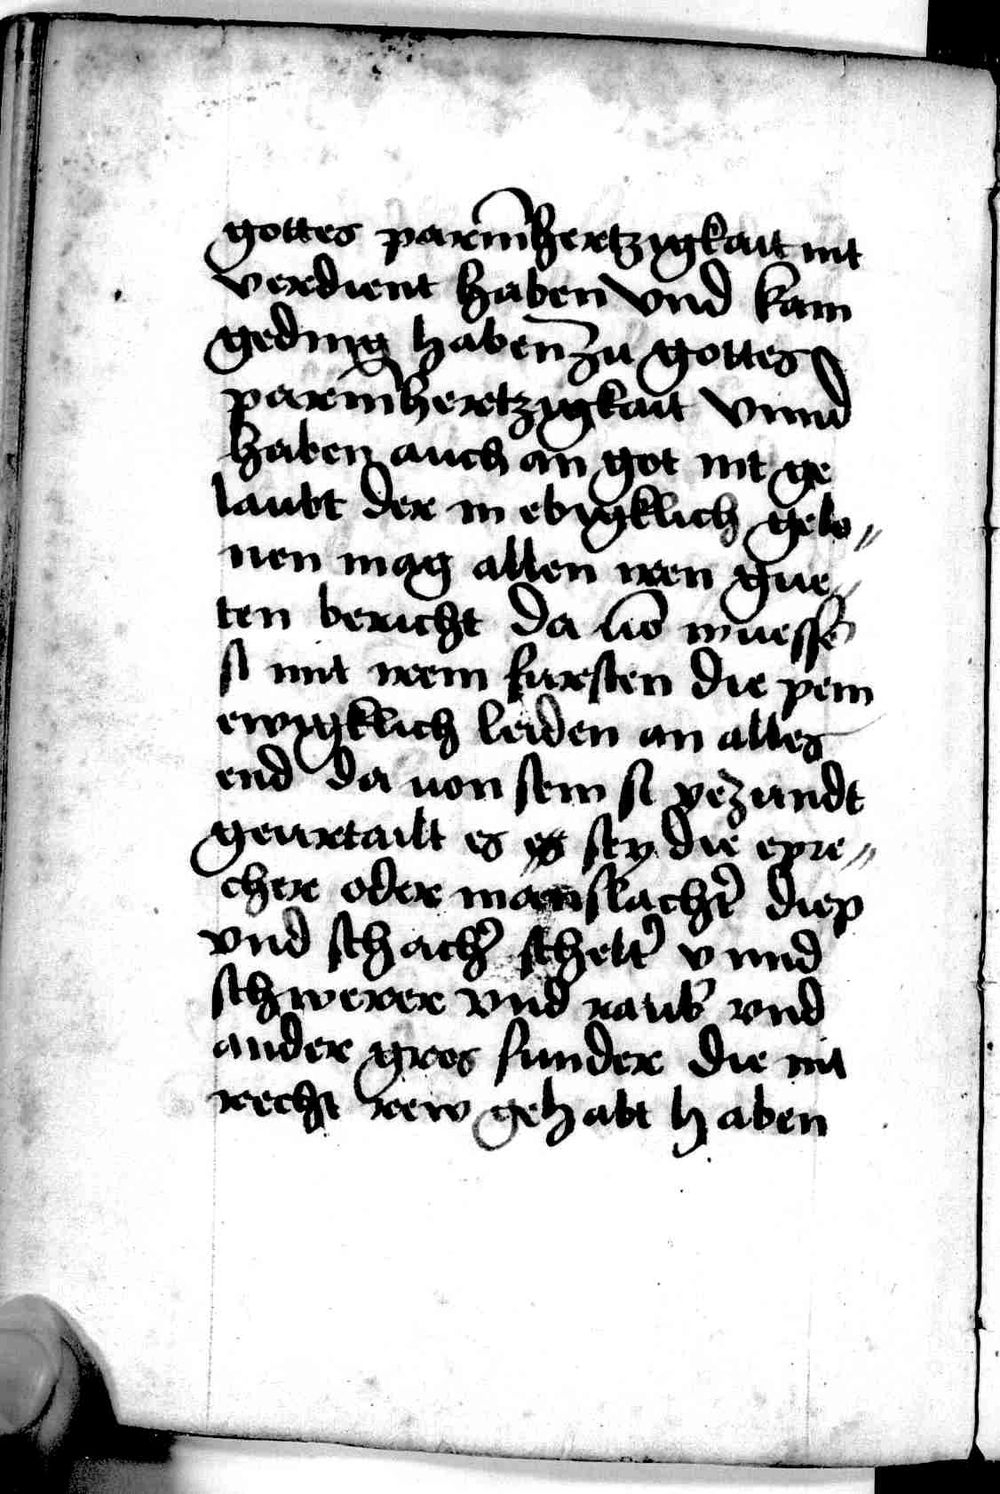 gottes parm̄hertzigkait nit
verdient haben vnd kain
geding haben zu gottes
parm̄hertzigkait vnnd
haben auch an got nit ge
laubt der in ebigklich gelo„
nen mag allen iren gue„
ten bericht da uō muessē
si mit irem fursten die pein
ewigklich leiden an alles
end da uon sein si yezundt
geurtailt es sey die epre„
cher oder manslachtˀ diep
vnd schachˀ scheltˀ vnnd
schwerer vnd raubˀ vnd
ander gros sunder die nit
recht rew gehabt haben